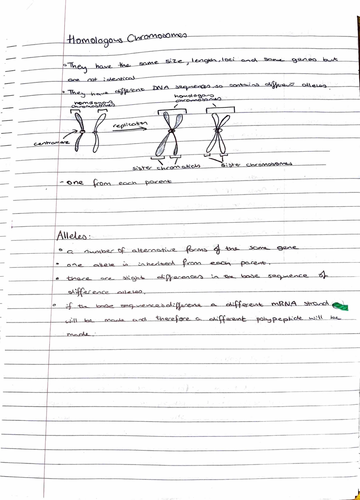 Homologous Chromosomes
• They have the same size, length, loci and same genes but
are not identical
• They have different DNA sequences, so contains different alleles.
homologous
chromosomes
homologous
chromosomes
replication
centromere
sister chromatids
sister chromosomes
- one from each parent
Alleles:
• a number of alternative forms of the same gene
• one allele is inherited from each parent.
• there are slight differences in the base sequence of
difference alleles.
• if the base sequences different a different mRNA strand
will be made and therefore a different polypeptide will be
made.